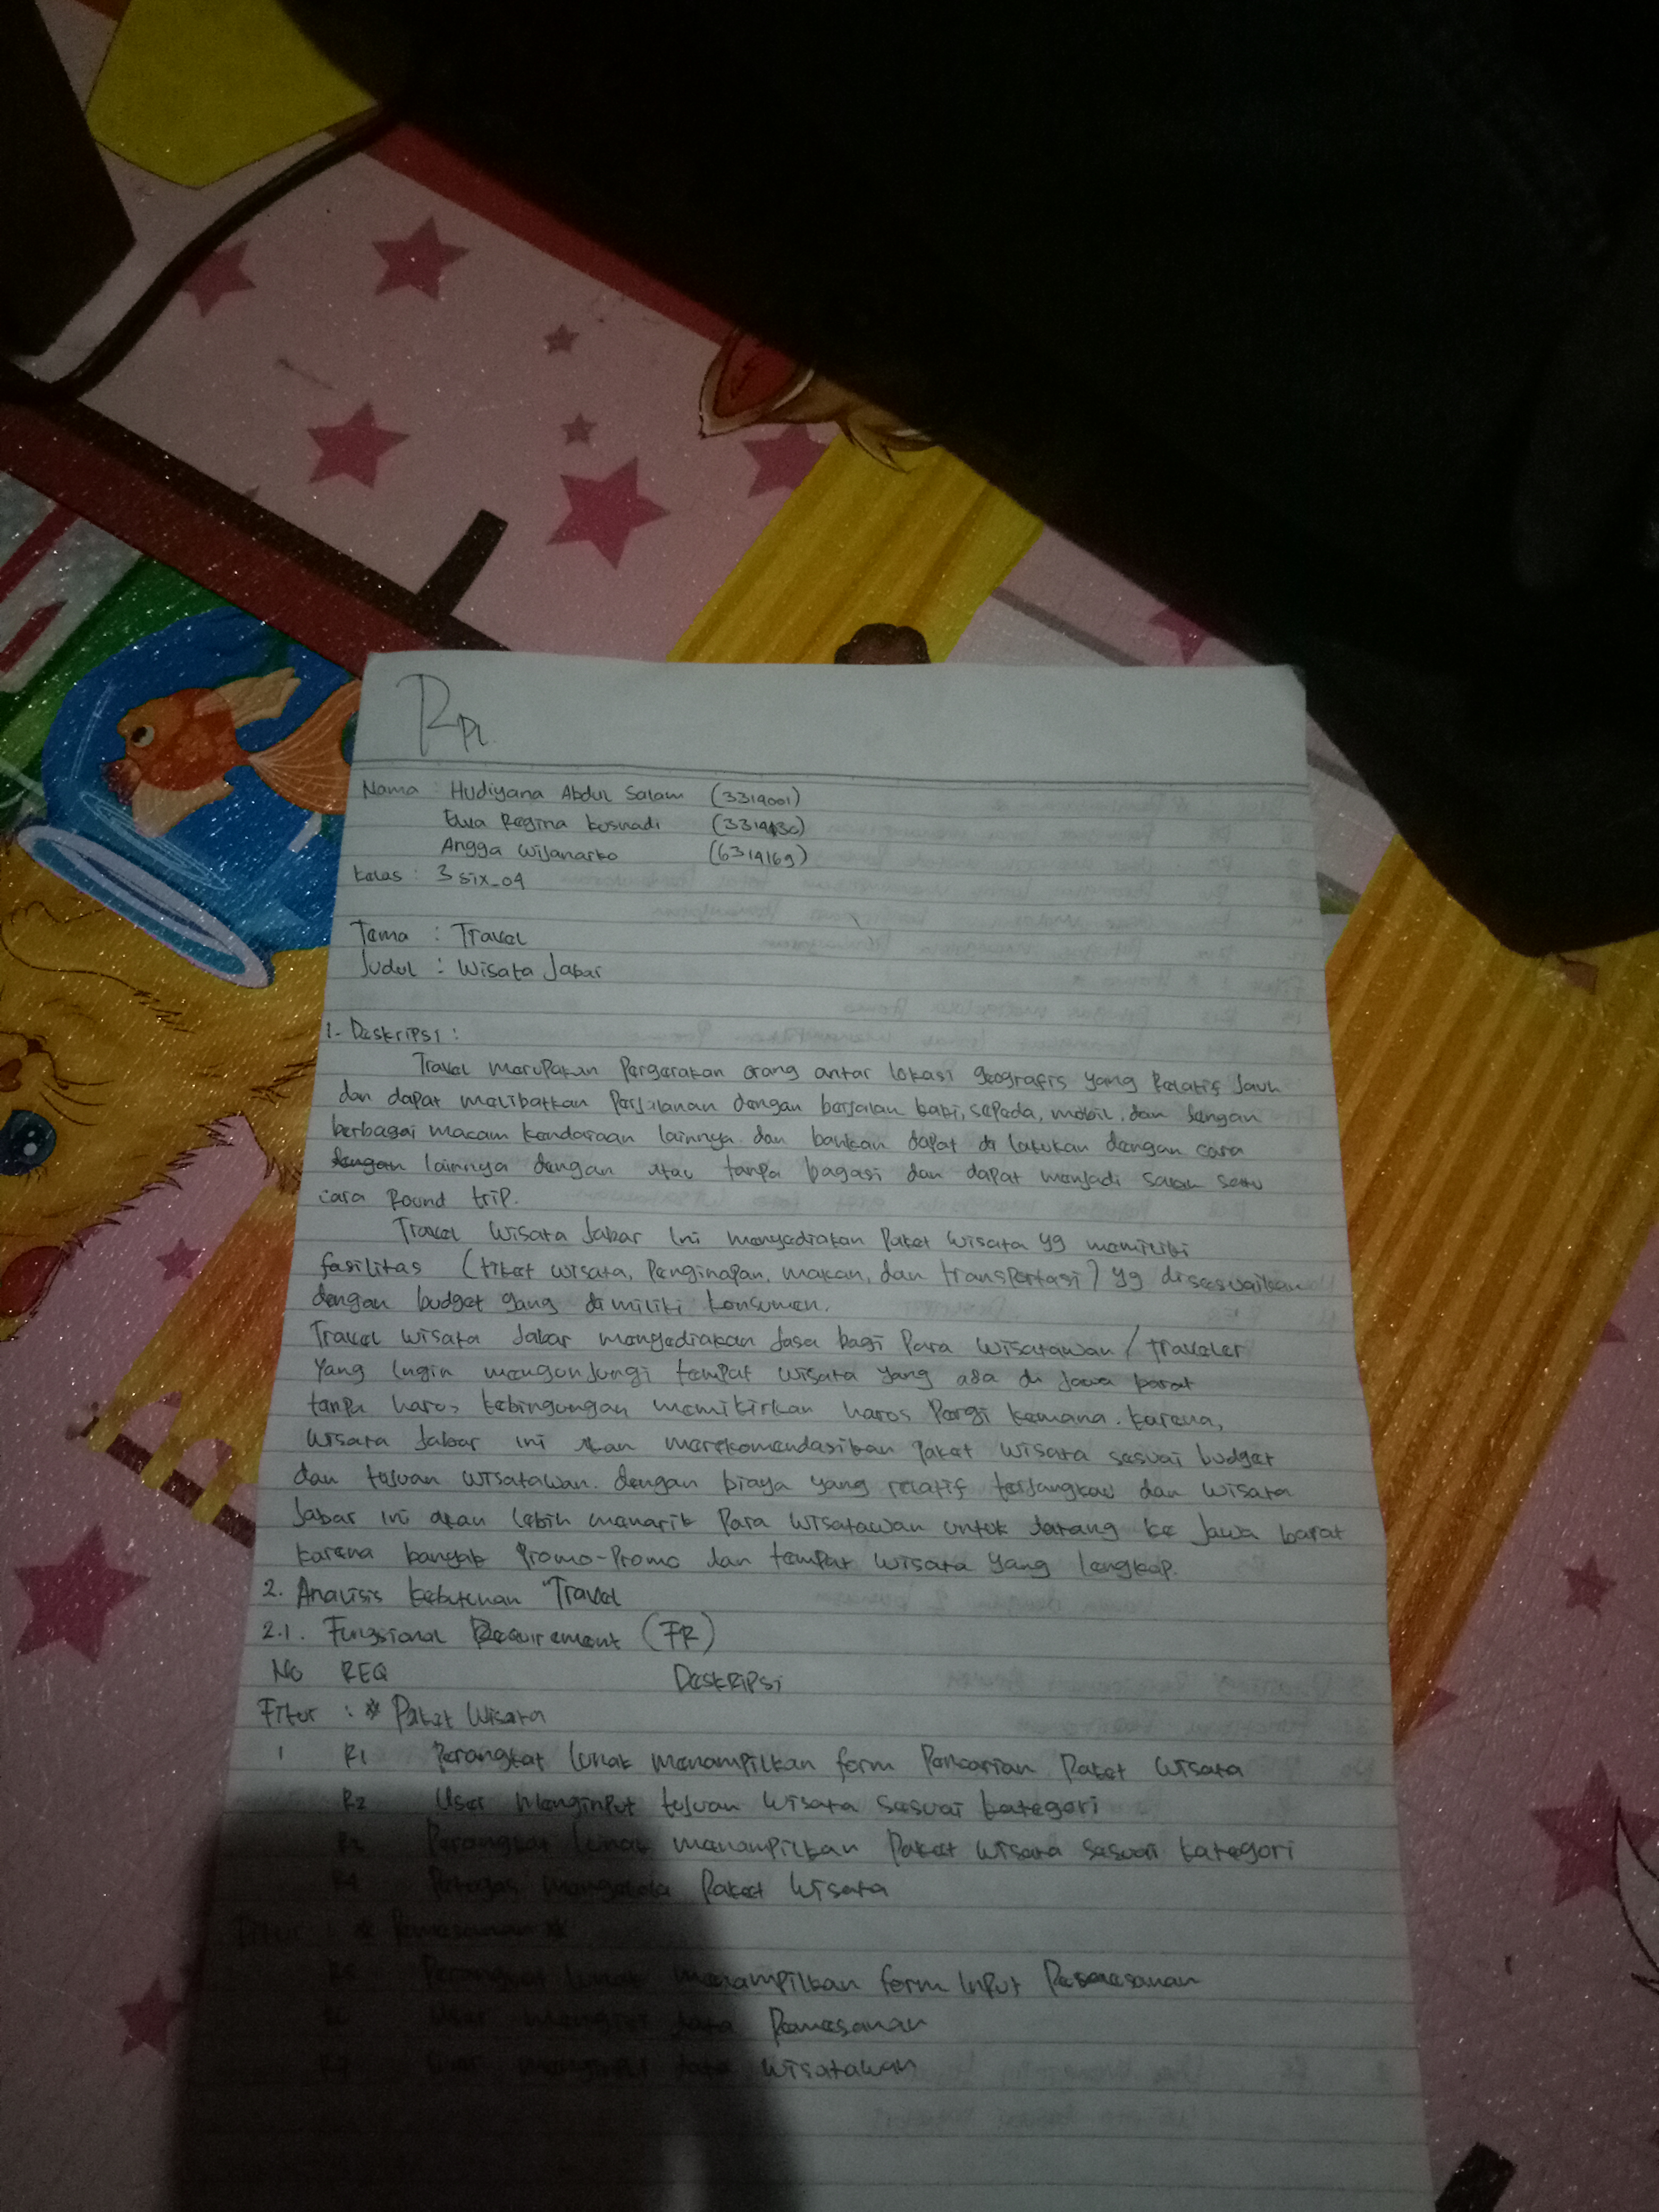 RPL
Nama : Hudiyana Abdul Salam (3319001)
Elwa Regina kusnadi
Angga Wijanarko (6319169)
Kelas : 3 six_04
Tema : Travel
Judul : Wisata Jabar
1. Deskripsi :
Travel merupakan Pergerakan orang antar lokasi geografis yang Relatif Jauh
dan dapat melibatkan Perjalanan dengan berjalan kaki, sepeda, mobil, dan dengan
berbagai macam kendaraan lainnya. dan bahkan dapat di lakukan dengan cara
lainnya dengan atau tanpa bagasi dan dapat menjadi salah satu
cara Round trip.
Travel Wisata Jabar Ini menyediakan Paket Wisata yg memiliki
fasilitas (tiket wisata, Penginapan, makan, dan transportasi) yg disesuaikan
dengan budget yang dimiliki konsumen.
Travel wisata Jabar menyediakan Jasa bagi Para Wisatawan / traveler
Yang Ingin mengunjungi tempat wisata yang ada di Jawa barat
tanpa harus kebingungan memikirkan harus Pergi kemana. karena,
Wisata Jabar ini akan merekomendasikan Paket wisata sesuai budget
dan tujuan wisatawan. dengan biaya yang relatif terjangkau dan wisata
Jabar ini akan lebih menarik Para wisatawan untuk datang ke Jawa barat
karena banyak Promo-Promo dan tempat wisata yang lengkap.
2. Analisis kebutuhan Travel
2.1. Fungsional Requirement (FR)
No REQ Deskripsi
Fitur : * Paket Wisata
1 R1 Perangkat lunak menampilkan form Pencarian Paket Wisata
R2 User Menginput tujuan Wisata sesuai kategori
R3 Perangkat lunak menampilkan Paket Wisata sesuai kategori
R4 Petugas mengelola Paket Wisata
Fitur : * Pemesanan *
R5 Perangkat lunak menampilkan form Input Pemesanan
R6 User data Pemesanan
R7 User menginput data Wisatawan